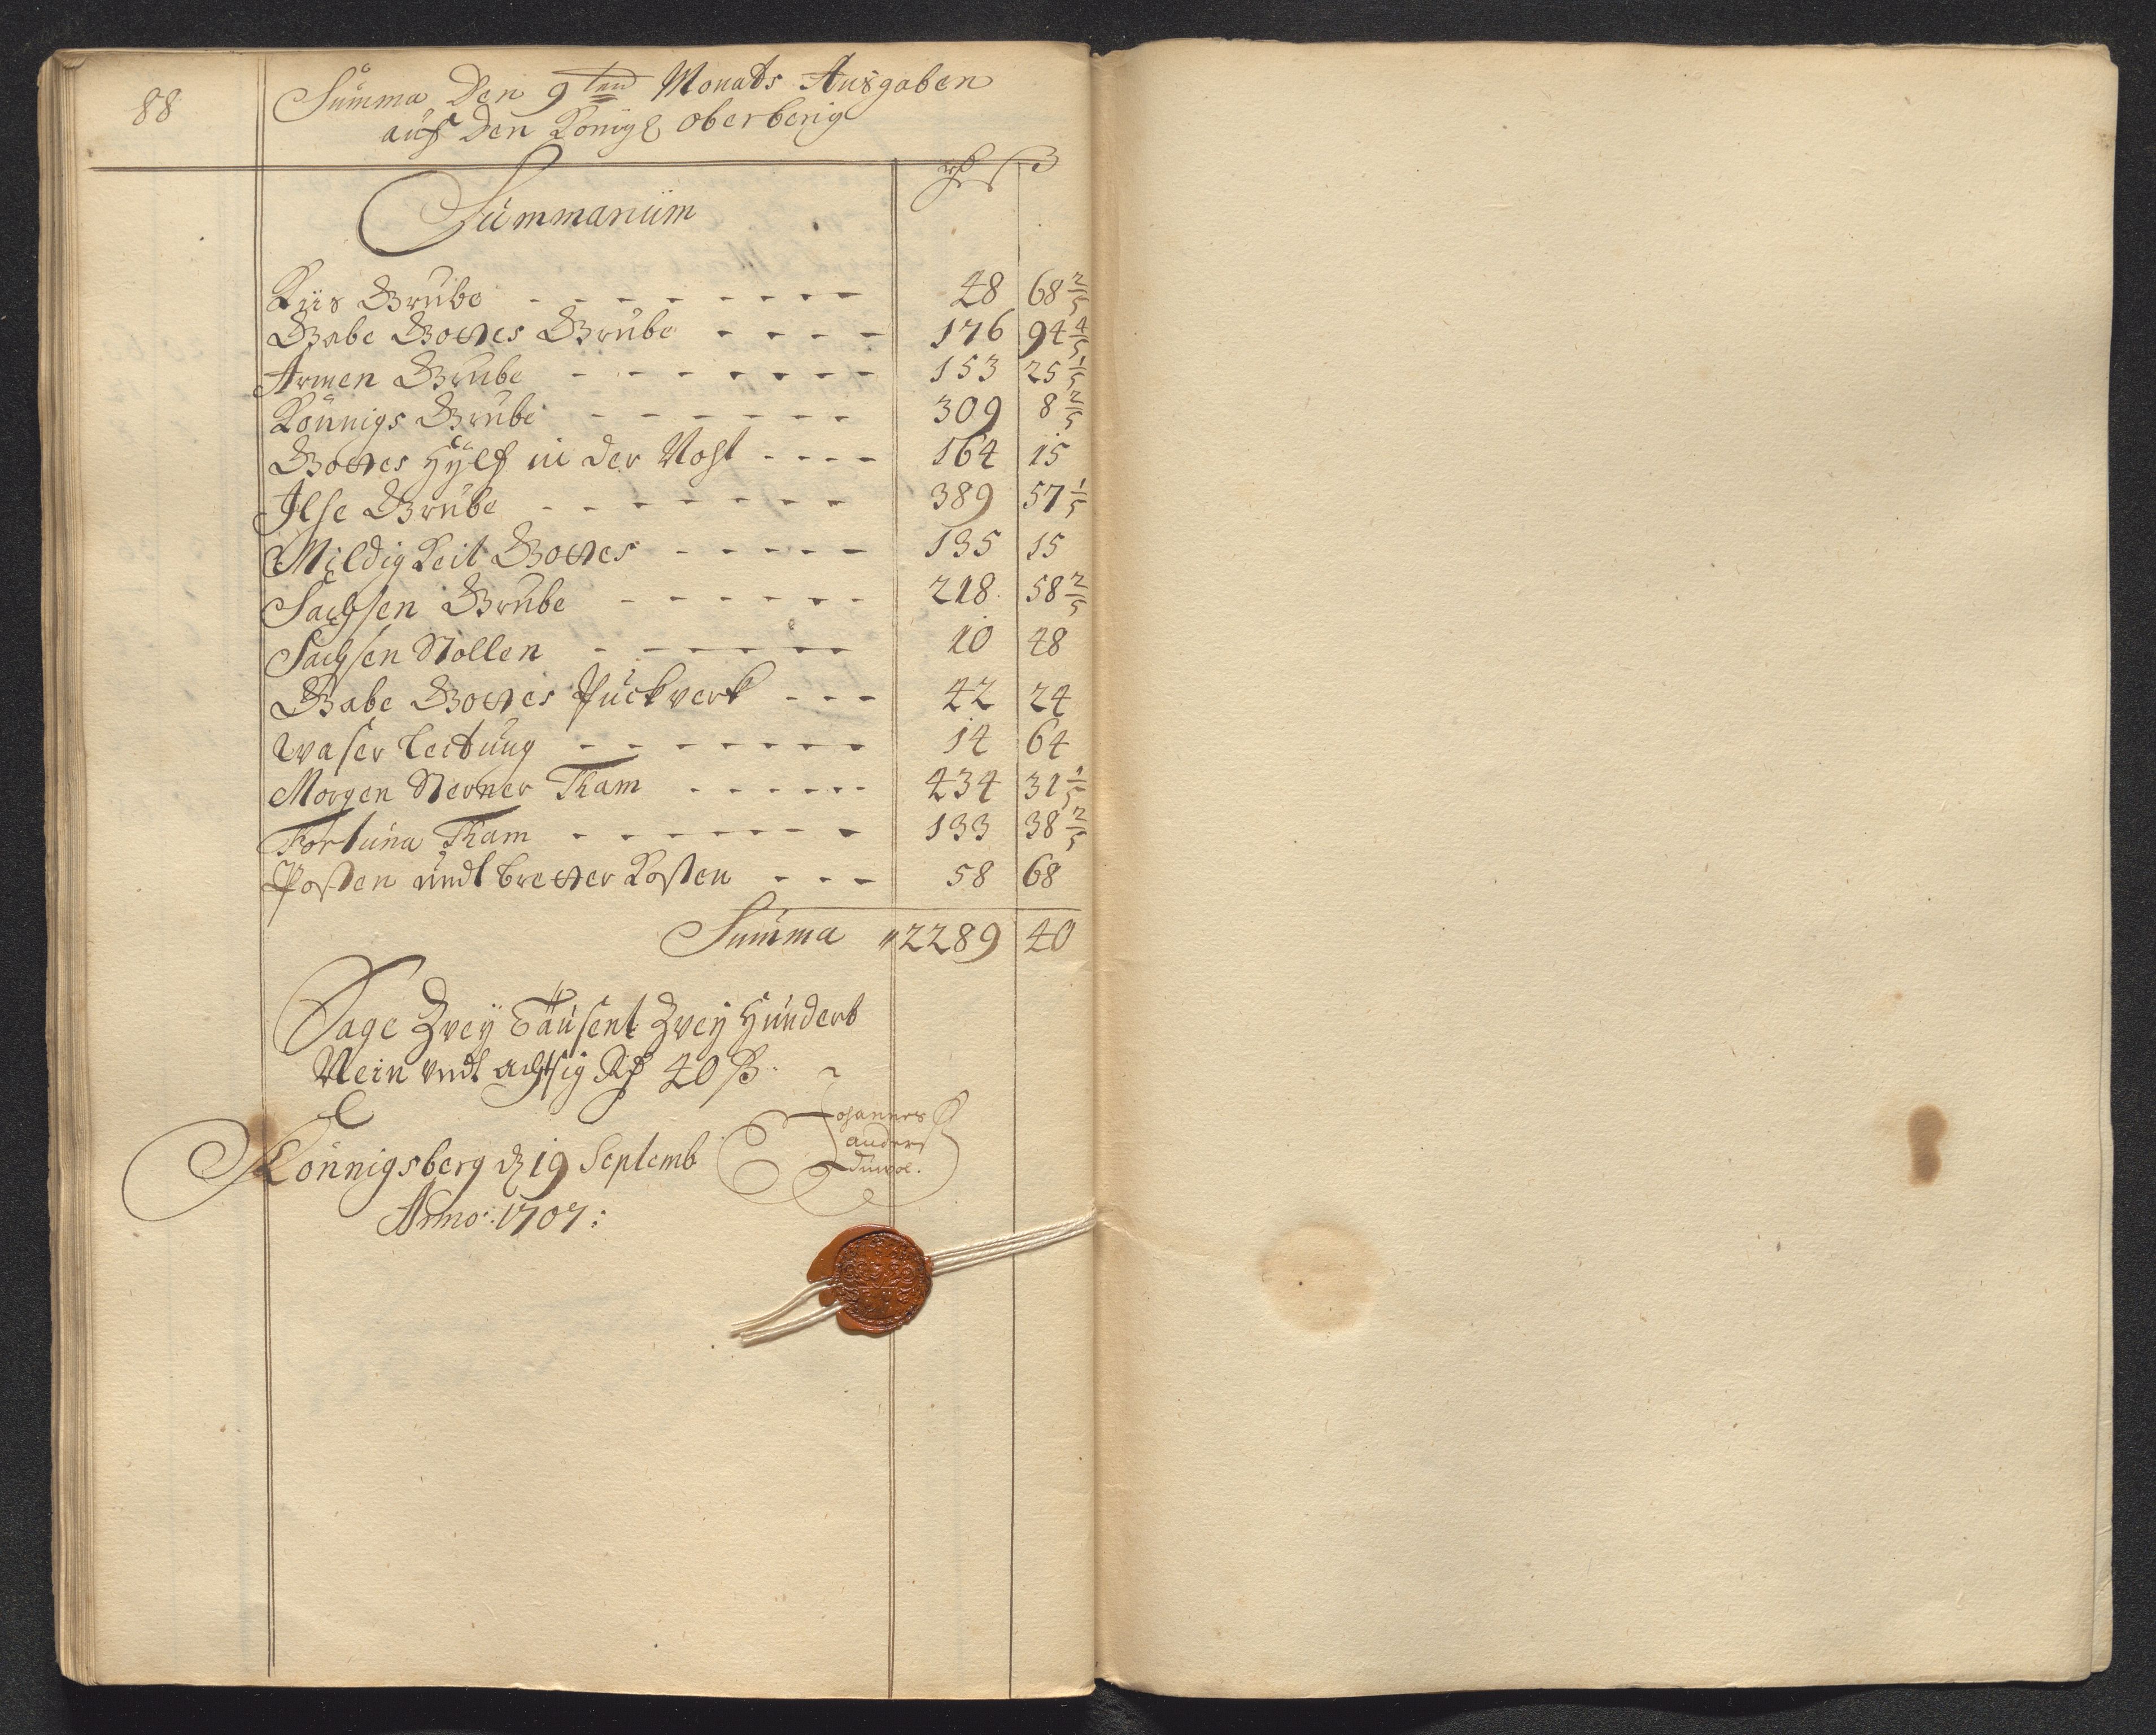 88
Summa Den 9ten Monats Ausgaben
auf Den Königl Oberberig
rthl ß
Summarium
Kiis Grube - - - - - - - - 48 68 2/5
Gabe Gottes Grube - - - - 176 94 4/5
Armen Grube - - - - - - - 153 25 1/5
Könnigs Grube - - - - - - 309 8 2/5
Gottes Hylf in der Noht - - - - 164 15
Ilse Grube - - - - - - - 389 57 1/5
Mildigkeit Gottes - - - - - 135 15
Sachsen Grube - - - - - - 218 58 2/5
Sachsen Stollen - - - - - - 10 48
Gabe Gottes Puckverk - - - 42 24
Waser Leitung - - - - - - - 14 64
Morgen Sterner Tham - - - - - - 434 31 1/5
Fortuna Tham - - - - - - - 133 38 2/5
Posten undt bretter Kosten - - - 58 68
Summa 2289 40
Sage Zvey Tausent Zvey Hundert
Nein undt achtsig Rth 40 ß.
Könnigsberg d 19 Septemb
Anno: 1707:
Johannes
anders